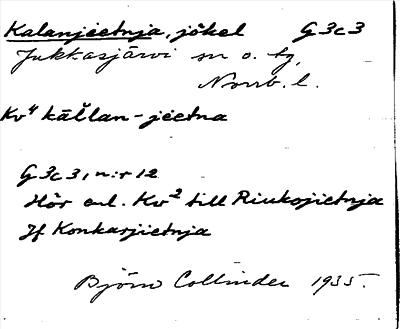 Kalanjeetnja, jökel G3c3
Jukkasjärvi sn o. tg,
Norrb. l.
Kv⁴ källan-jeetna
G3c3, n:r 12
Hör enl. Kv² till Riukojietnja
Jf Konkarjietnja
Björn Collinder 1935.